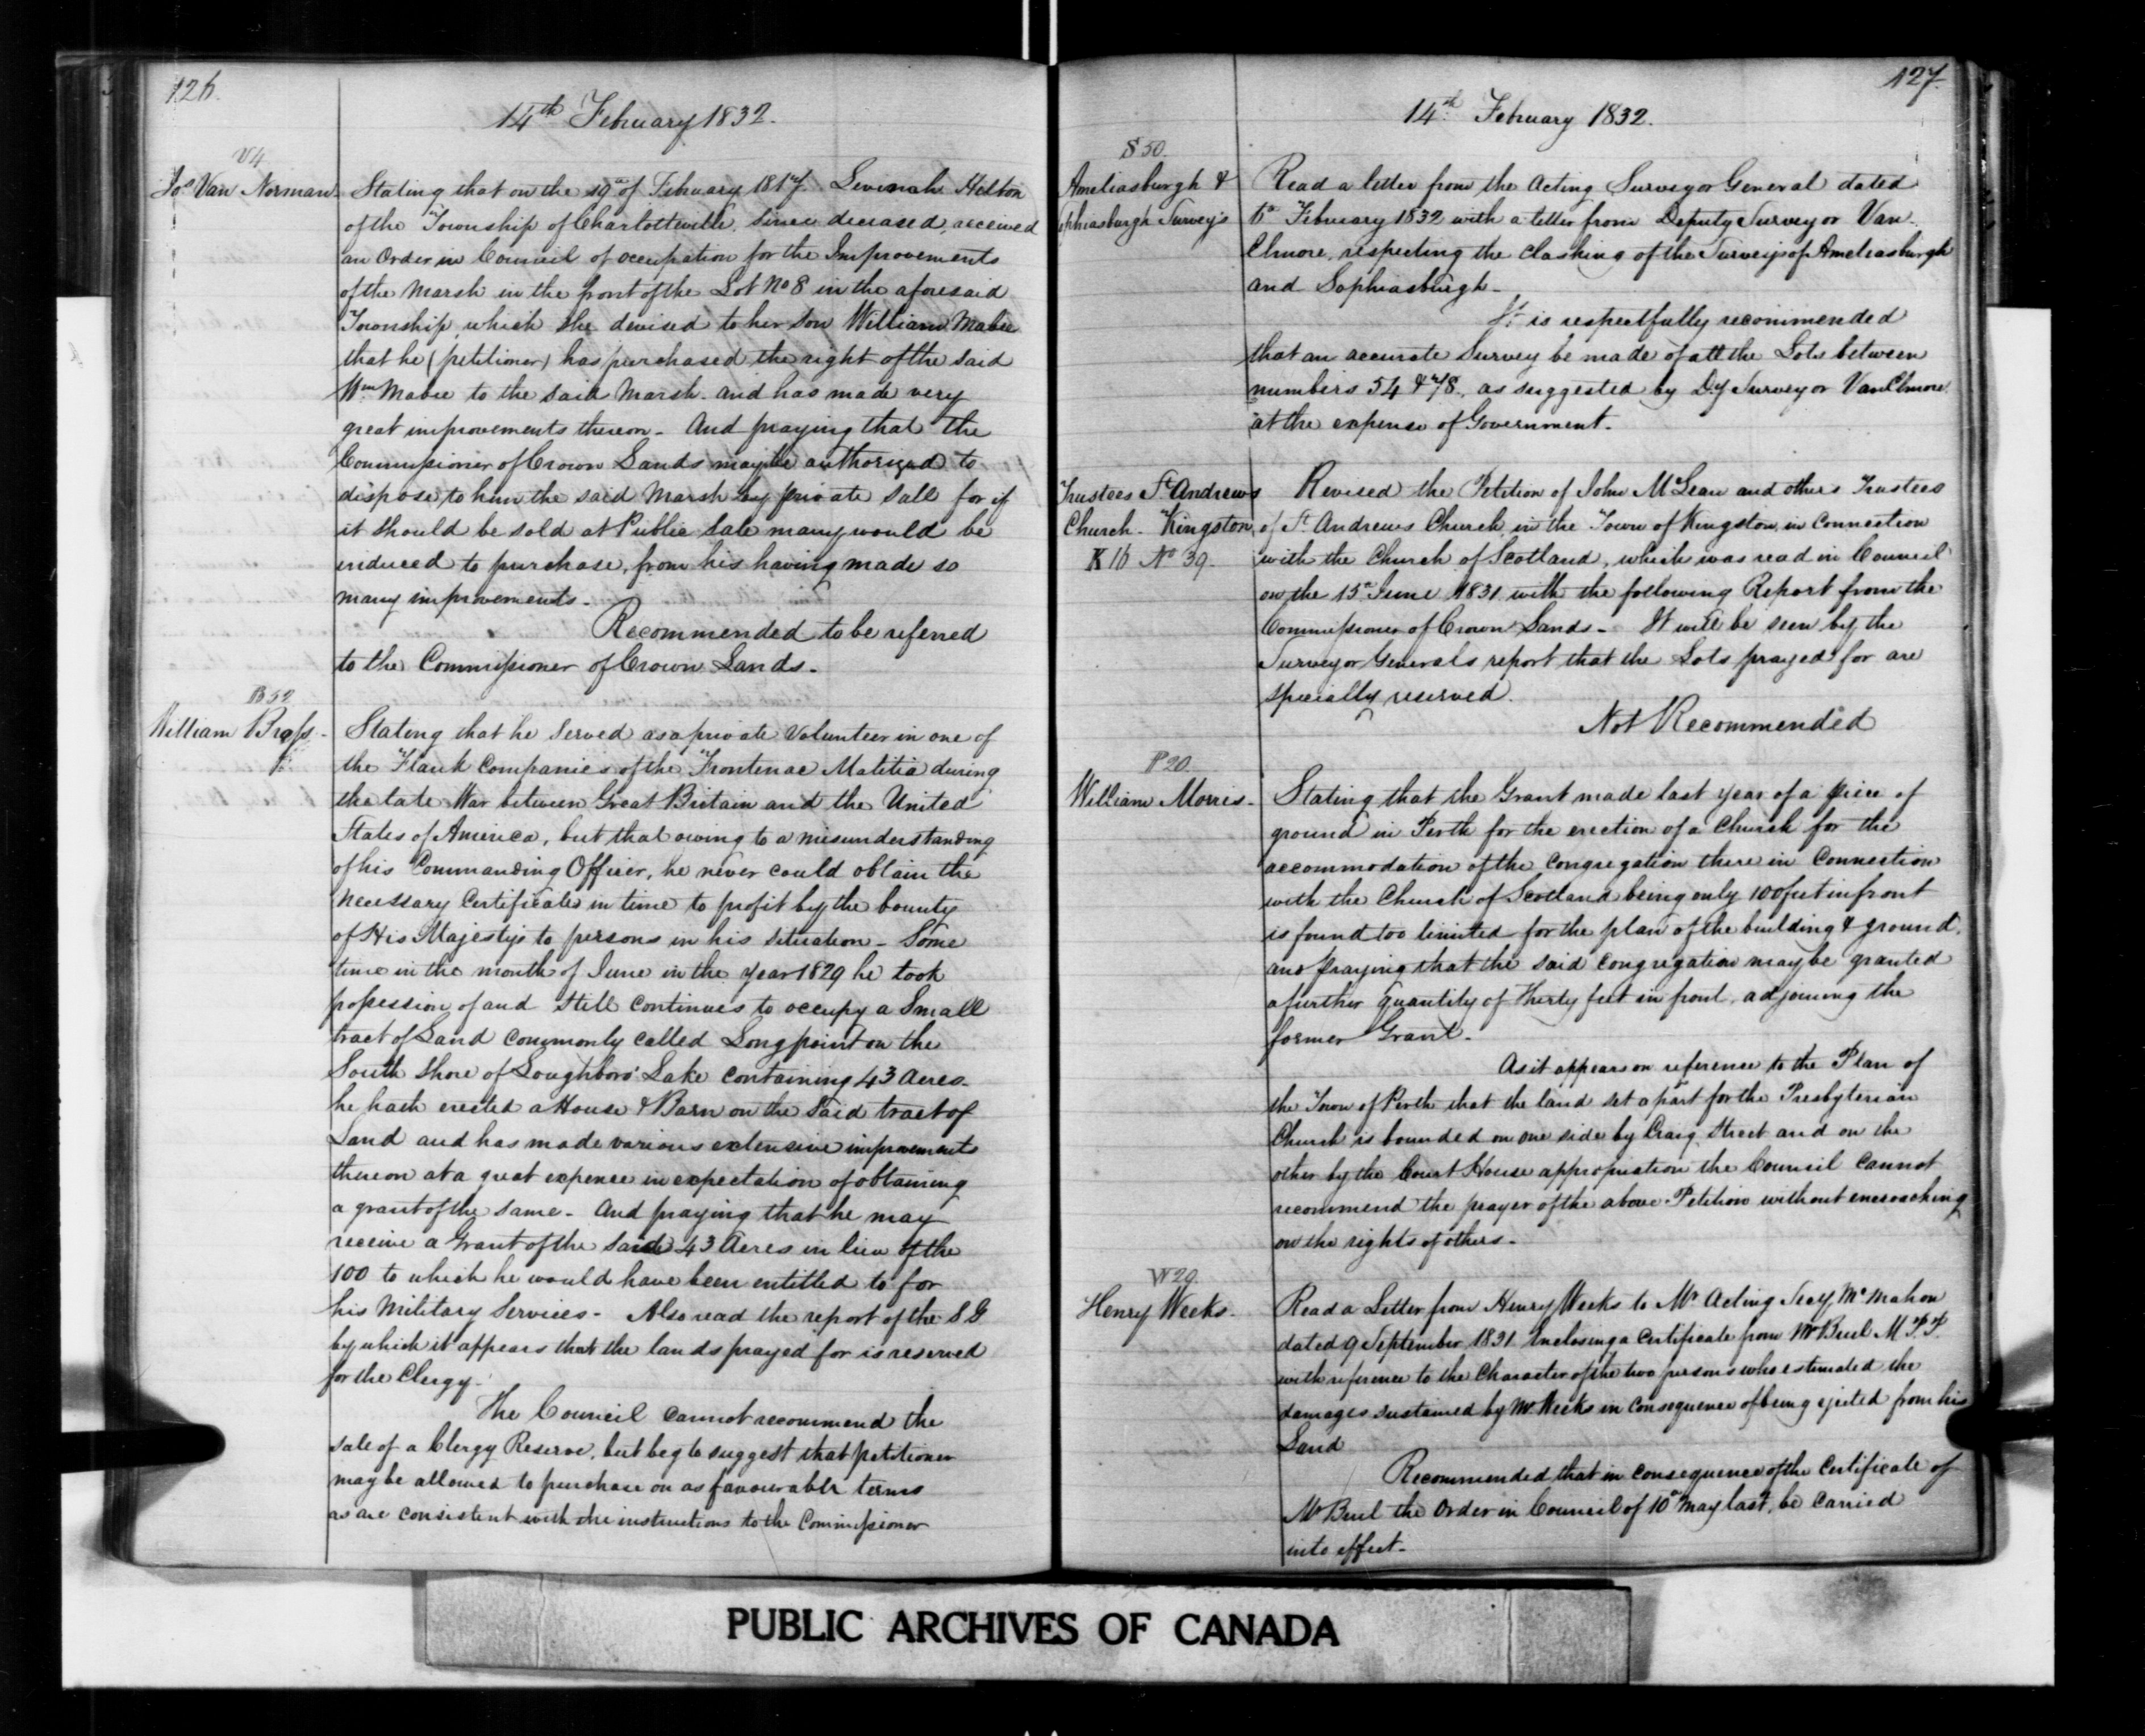 126.
14th February 1832.
V 4
Jos Van Norman. Stating that on the 19th of February 1817 Levinah Helton
of the Township of Charlotteville, since deceased, received
an Order in Council of occupation for the Improvements
of the Marsh in the front of the Lot No 8 in the aforesaid
Township, which she devised to her son William Mabee
that he (petitioner) has purchased the right of the said
Wm Mabee to the said Marsh and has made very
great improvements thereon - And praying that the
Commissioner of Crown Lands may be authorized to
dispose to him the said Marsh by private Sale for if
it should be sold at Public Sale many would be
induced to purchase, from his having made so
many improvements.
Recommended to be referred
to the Commissioner of Crown Lands.
B 52
William Brass - Stating that he served as a private Volunteer in one of
the Flank Companies of the Frontenac Malitia during
the late War between Great Britain and the United
States of America, but that owing to a misunderstanding
of his Commanding Officer, he never could obtain the
necessary Certificates in time to profit by the bounty
of His Majesty's to persons in his situation - Some
time in the month of June in the year 1829 he took
possession of and still continues to occupy a Small
tract of Land commonly called Long point on the
South Shore of Loughboro' Lake containing 43 Acres.
he hath erected a House & Barn on the said tract of
Land and has made various extensive improvements
thereon at a great expence in expectation of obtaining
a grant of the same - And praying that he may
receive a Grant of the said 43 Acres in lieu of the
100 to which he would have been entitled to for
his Military Services - Also read the report of the S G
by which it appears that the lands prayed for is reserved
for the Clergy.
The Council cannot recommend the
sale of a Clergy Reserve, but beg to suggest that petitioner
may be allowed to purchase on as favourable terms
as are consistent with the instructions to the Commissioner
127.
14th February 1832.
S 50.
Ameliasburgh & Read a letter from the Acting Surveyor General dated
ophiasburgh Survey's 6th February 1832 with a letter from Deputy Surveyor Van
Elmore, respecting the clashing of the Surveys of Ameliasburgh
and Sophiasburgh -
It is respectfully recommended
that an accurate Survey be made of all the Lots between
numbers 54 & 78, as suggested by Dy Surveyor VanElmore
at the expense of Government.
Trustees St Andrews Revised the Petition of John McLean and others Trustees
Church - Kingston, of St Andrews Church, in the Town of Kingston, in Connection
K 16 No 39. with the Church of Scotland, which was read in Council
on the 15th June 1831 with the following Report from the
Commissioner of Crown Lands - It will be seen by the
Surveyor Generals report that the Lots prayed for are
specially reserved.
Not Recommended
P 20.
William Morris - Stating that the Grant made last year of a piece of
ground in Perth for the erection of a Church for the
accommodation of the Congregation there in Connection
with the Church of Scotland being only 100 feet in front
is found too limited for the plan of the building & ground,
and praying that the said Congregation may be granted
a further quantity of Thirty feet in front, adjoining the
former Grant.
As it appears on reference to the Plan of
the Town of Perth that the land set apart for the Presbyterian
Church is bounded on one side by Craig Street and on the
other by the Court House appropiation the Council cannot
recommend the prayer of the above Petition without encroaching
on the rights of others.
W 29.
Henry Weeks. Read a Letter from Henry Weeks to Mr Acting Secy McMahon
dated 9 September 1831 Enclosing a Certificate from Mr Buel M.P.P.
with reference to the Character of the two persons who estimated the
damages sustained by Mr Weeks in Consequence of being ejected from his
Land
Recommended that in consequence of the Certificate of
Mr Buel the Order in Council of 10th May last, be carried
into effect -
PUBLIC ARCHIVES OF CANADA